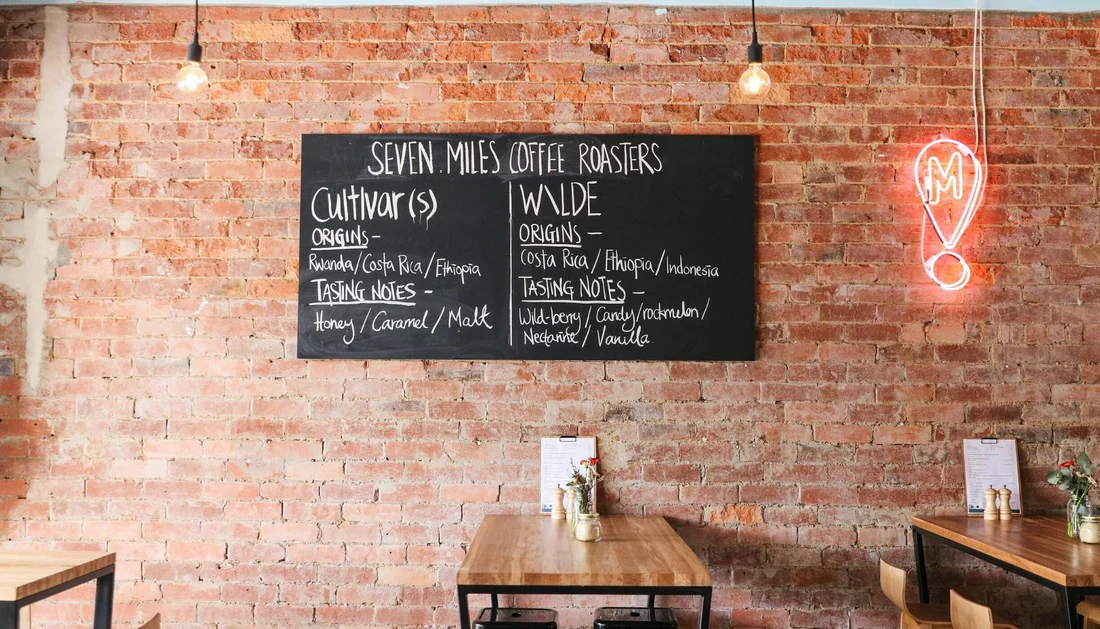 SEVEN MILES COFFEE ROASTERS
Cultivar(s)
ORIGINS-
Rwanda/Costa Rica/Ethiopia
TASTING NOTES -
Honey / Caramel / Malt
WILDE
ORIGINS -
Costa Rica/Ethiopia/Indonesia
TASTING NOTES -
Wild-berry/Candy/rockmelon/
Nectarine/Vanilla
M